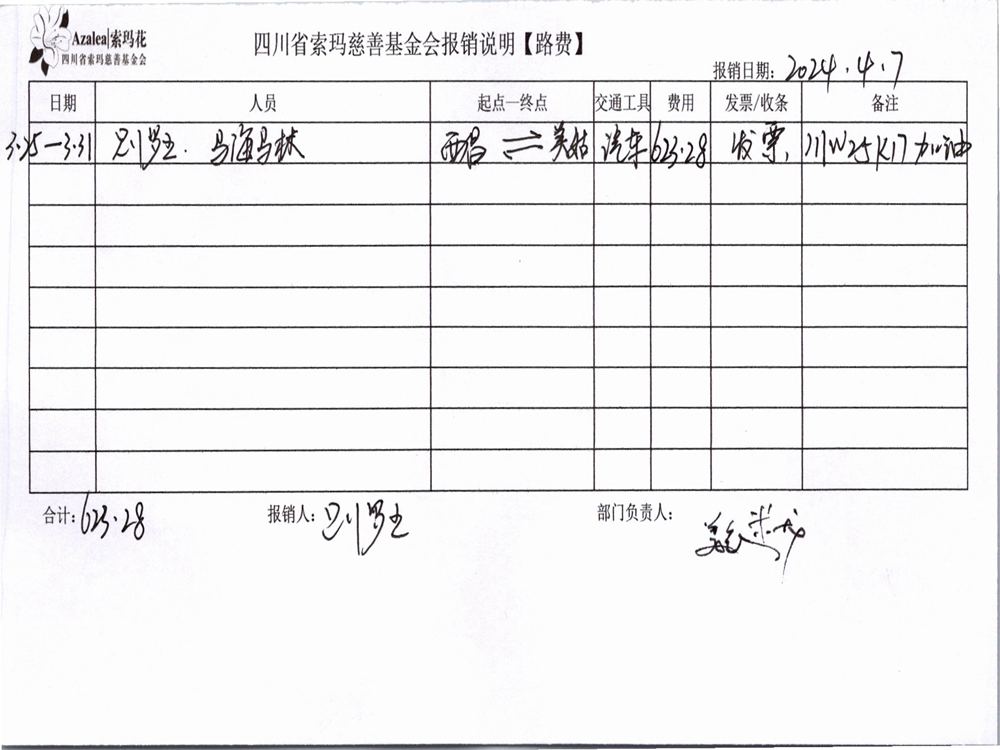 Azalea|索玛花
四川省索玛慈善基金会
四川省索玛慈善基金会报销说明【路费】
报销日期：2024.4.7
日期 人员 起点—终点 交通工具 费用 发票/收条 备注
3.25—3.31 马海马林 西昌⇌美姑 汽车 623.28 发票 川W25K17加油
合计：623.28 报销人： 部门负责人：